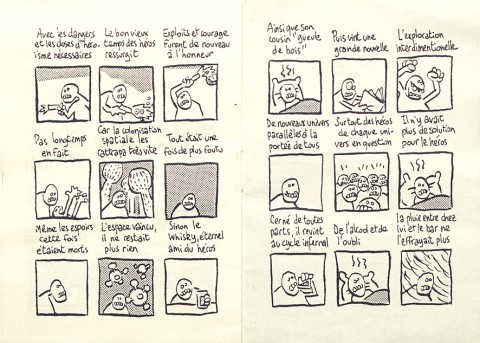 Avec les dangers
et les doses d'héro-
isme nécessaires
Le bon vieux
temps des héros
ressurgit
Exploits et courage
furent de nouveau
à l'honneur
Pas longtemps
en fait
Car la colonisation
spatiale les
rattrapa très vite
Tout était une
fois de plus foutu
Même les espoirs
cette fois
étaient morts
L'espace vaincu,
il ne restait
plus rien
Sinon le
whisky, éternel
ami du héros
Ainsi que son
cousin "gueule
de bois"
Puis vint une
grande nouvelle
L'exploration
interdimentionelle
De nouveaux univers
parallèles à la
portée de tous
Surtout des héros
de chaque uni-
vers en question
Il n'y avait
plus de solution
pour le héros
Cerné de toutes
parts, il revint
au cycle infernal
De l'alcool et de
l'oubli
La pluie entre chez
lui et le bar ne
l'effrayait plus